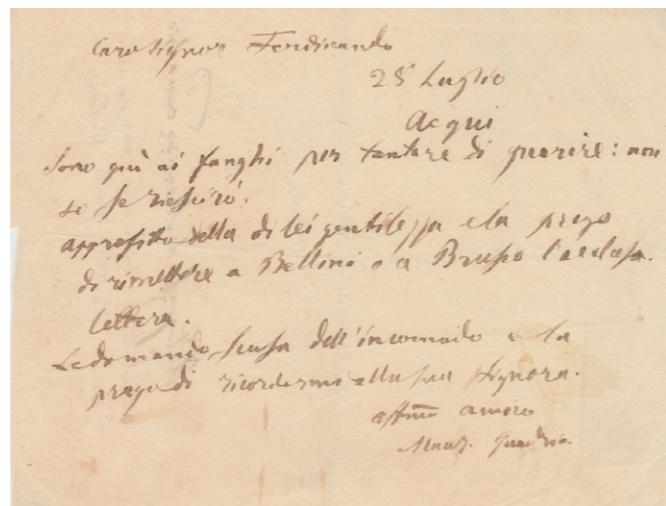 Caro Signor Ferdinando
25 Luglio
Acqui
Sono quì ai fanghi per tentare di guarire: non
so se riescirò.
approfitto della di lei gentilezza e la prego
di rimettere a Bellini o a Brusco l'acclusa
lettera.
Le domando scusa dell'incomodo e la
prego di ricordarmi alla sua Signora.
affmo amico
Mauz.